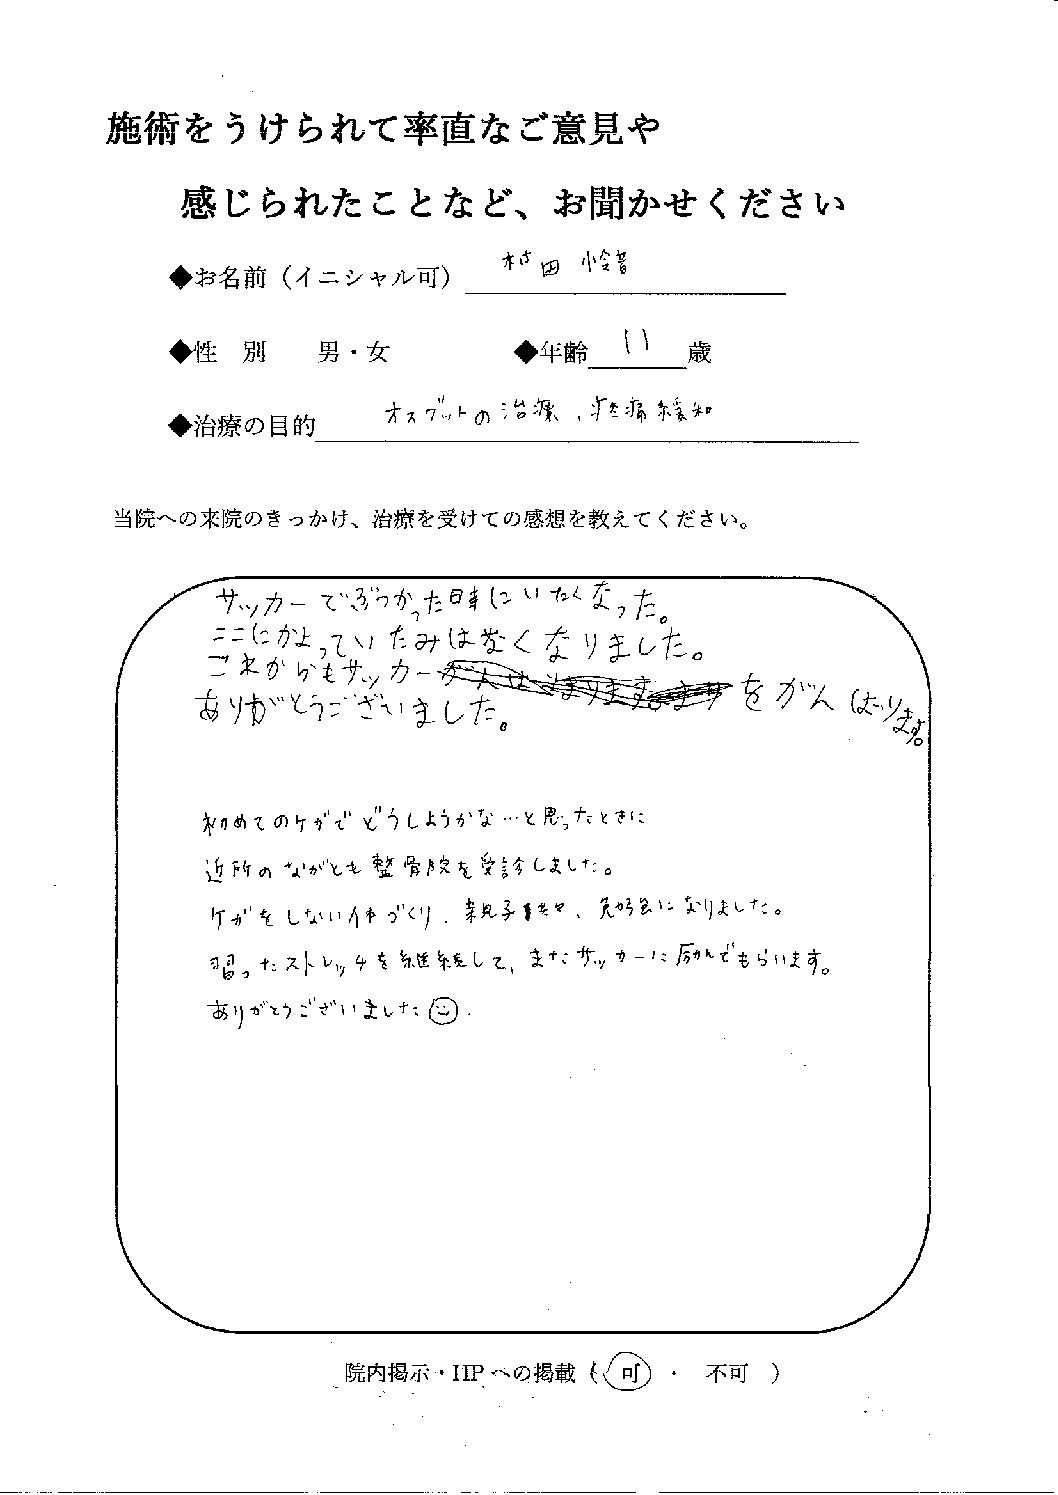 施術をうけられて率直なご意見や
感じられたことなど、お聞かせください
◆お名前（イニシャル可） 村田 怜音
◆性 別 男・女 ◆年齢 11 歳
◆治療の目的 オスグットの治療、疼痛緩和
当院への来院のきっかけ、治療を受けての感想を教えてください。
サッカーでぶつかった時にいたくなった。
ここにかよっていたみはなくなりました。
これからもサッカーをがんばります。
ありがとうございました。
初めてのケガでどうしようかな…と思ったときに
近所のながとも整骨院を受診しました。
ケガをしない体づくり、親子共々、勉強になりました。
習ったストレッチを継続して、またサッカーに励んでもらいます。
ありがとうございました☺.
院内掲示・HPへの掲載（ 可 ・ 不可 ）